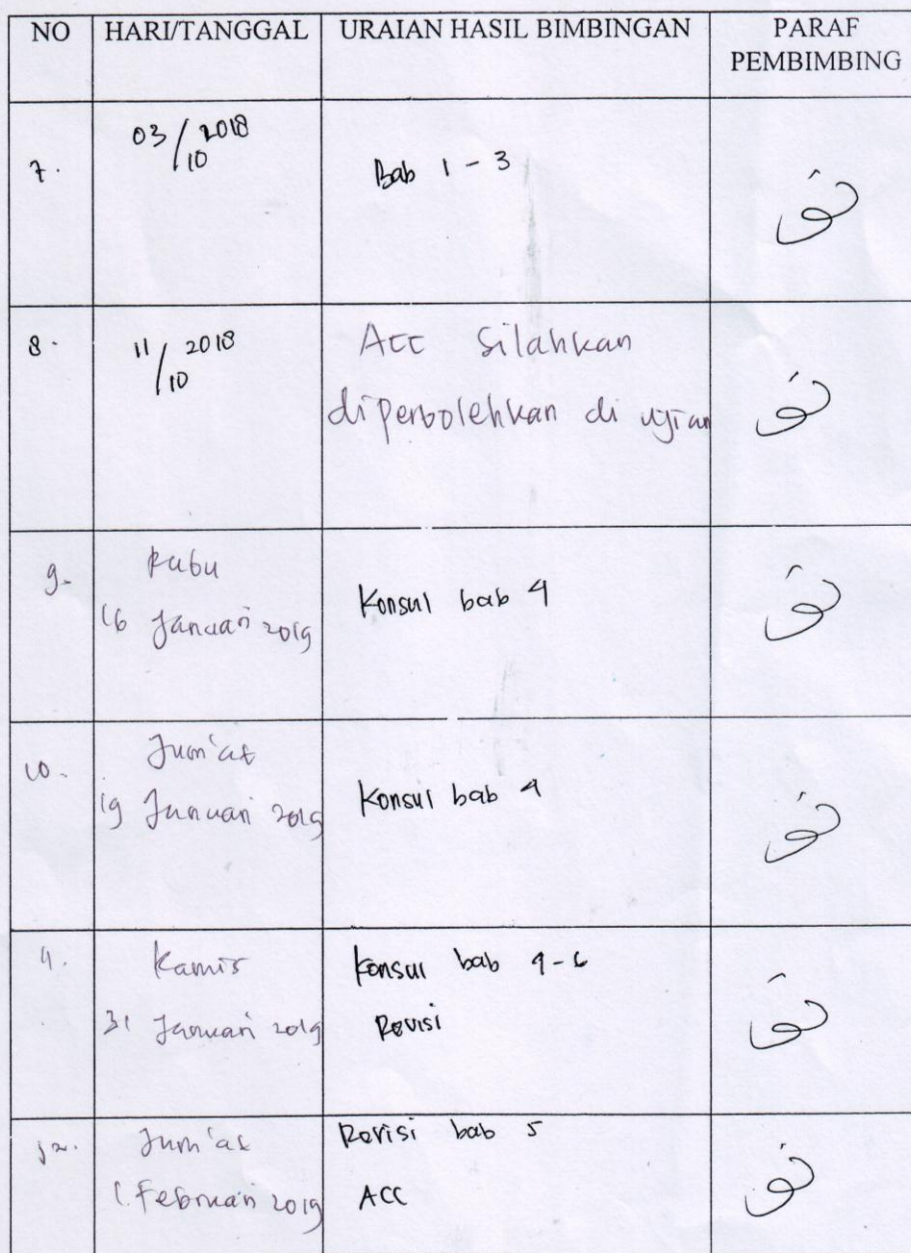 NO HARI/TANGGAL URAIAN HASIL BIMBINGAN PARAF
PEMBIMBING
7. 03/10 2018 Bab 1 - 3
8. 11/10 2018 Acc Silahkan
diperbolehkan di ujian
9. Rabu
16 Januari 2019 Konsul bab 4
10. Jum'at
19 Januari 2019 Konsul bab 4
11. Kamis Konsul bab 4-6
31 Januari 2019 Revisi
12. Jum'at Revisi bab 5
1. Februari 2019 ACC